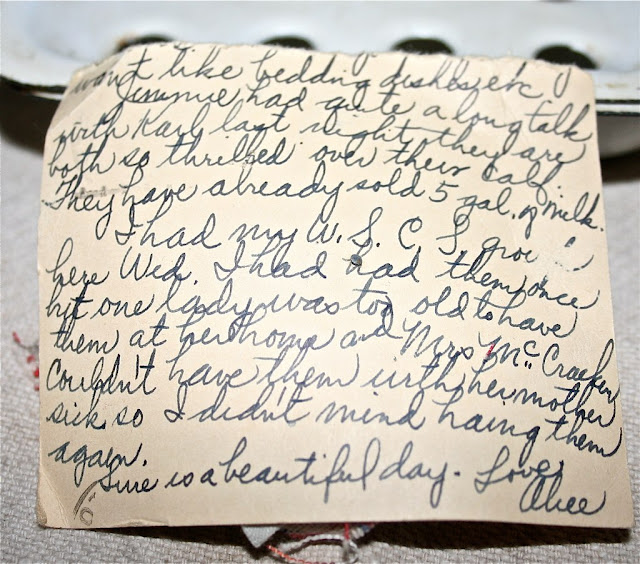 want like bedding dishes, etc
Jimmie had quite a long talk
with Karl last night, they are
both so thrilled over their calf.
They have already sold 5 gal. of milk.
I had my W. S. C. S. grou
here Wed. I had had them once
but one lady was too old to have
them at her home and Mrs McCracken
couldn't have them with her mother
sick, so I didn't mind having them
again.
Sure is a beautiful day. Love,
Alice